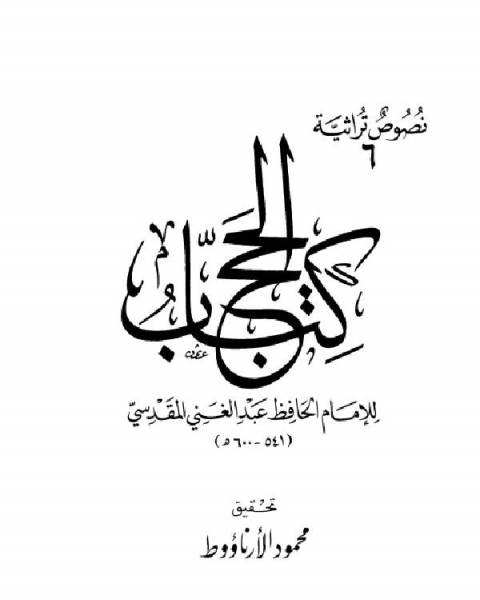 نُصُوصٌ تُراثيَّة
٦
كِتَابُ الحَجّ
للإمَام الحَافِظ عَبْد الغَني المَقْدِسيّ
(٥٤١ - ٦٠٠ هـ)
تحْقيق
محمود الأرناؤوط